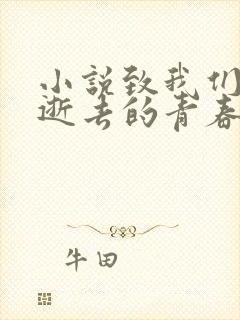 小説致我们
逝去的青春
牛田